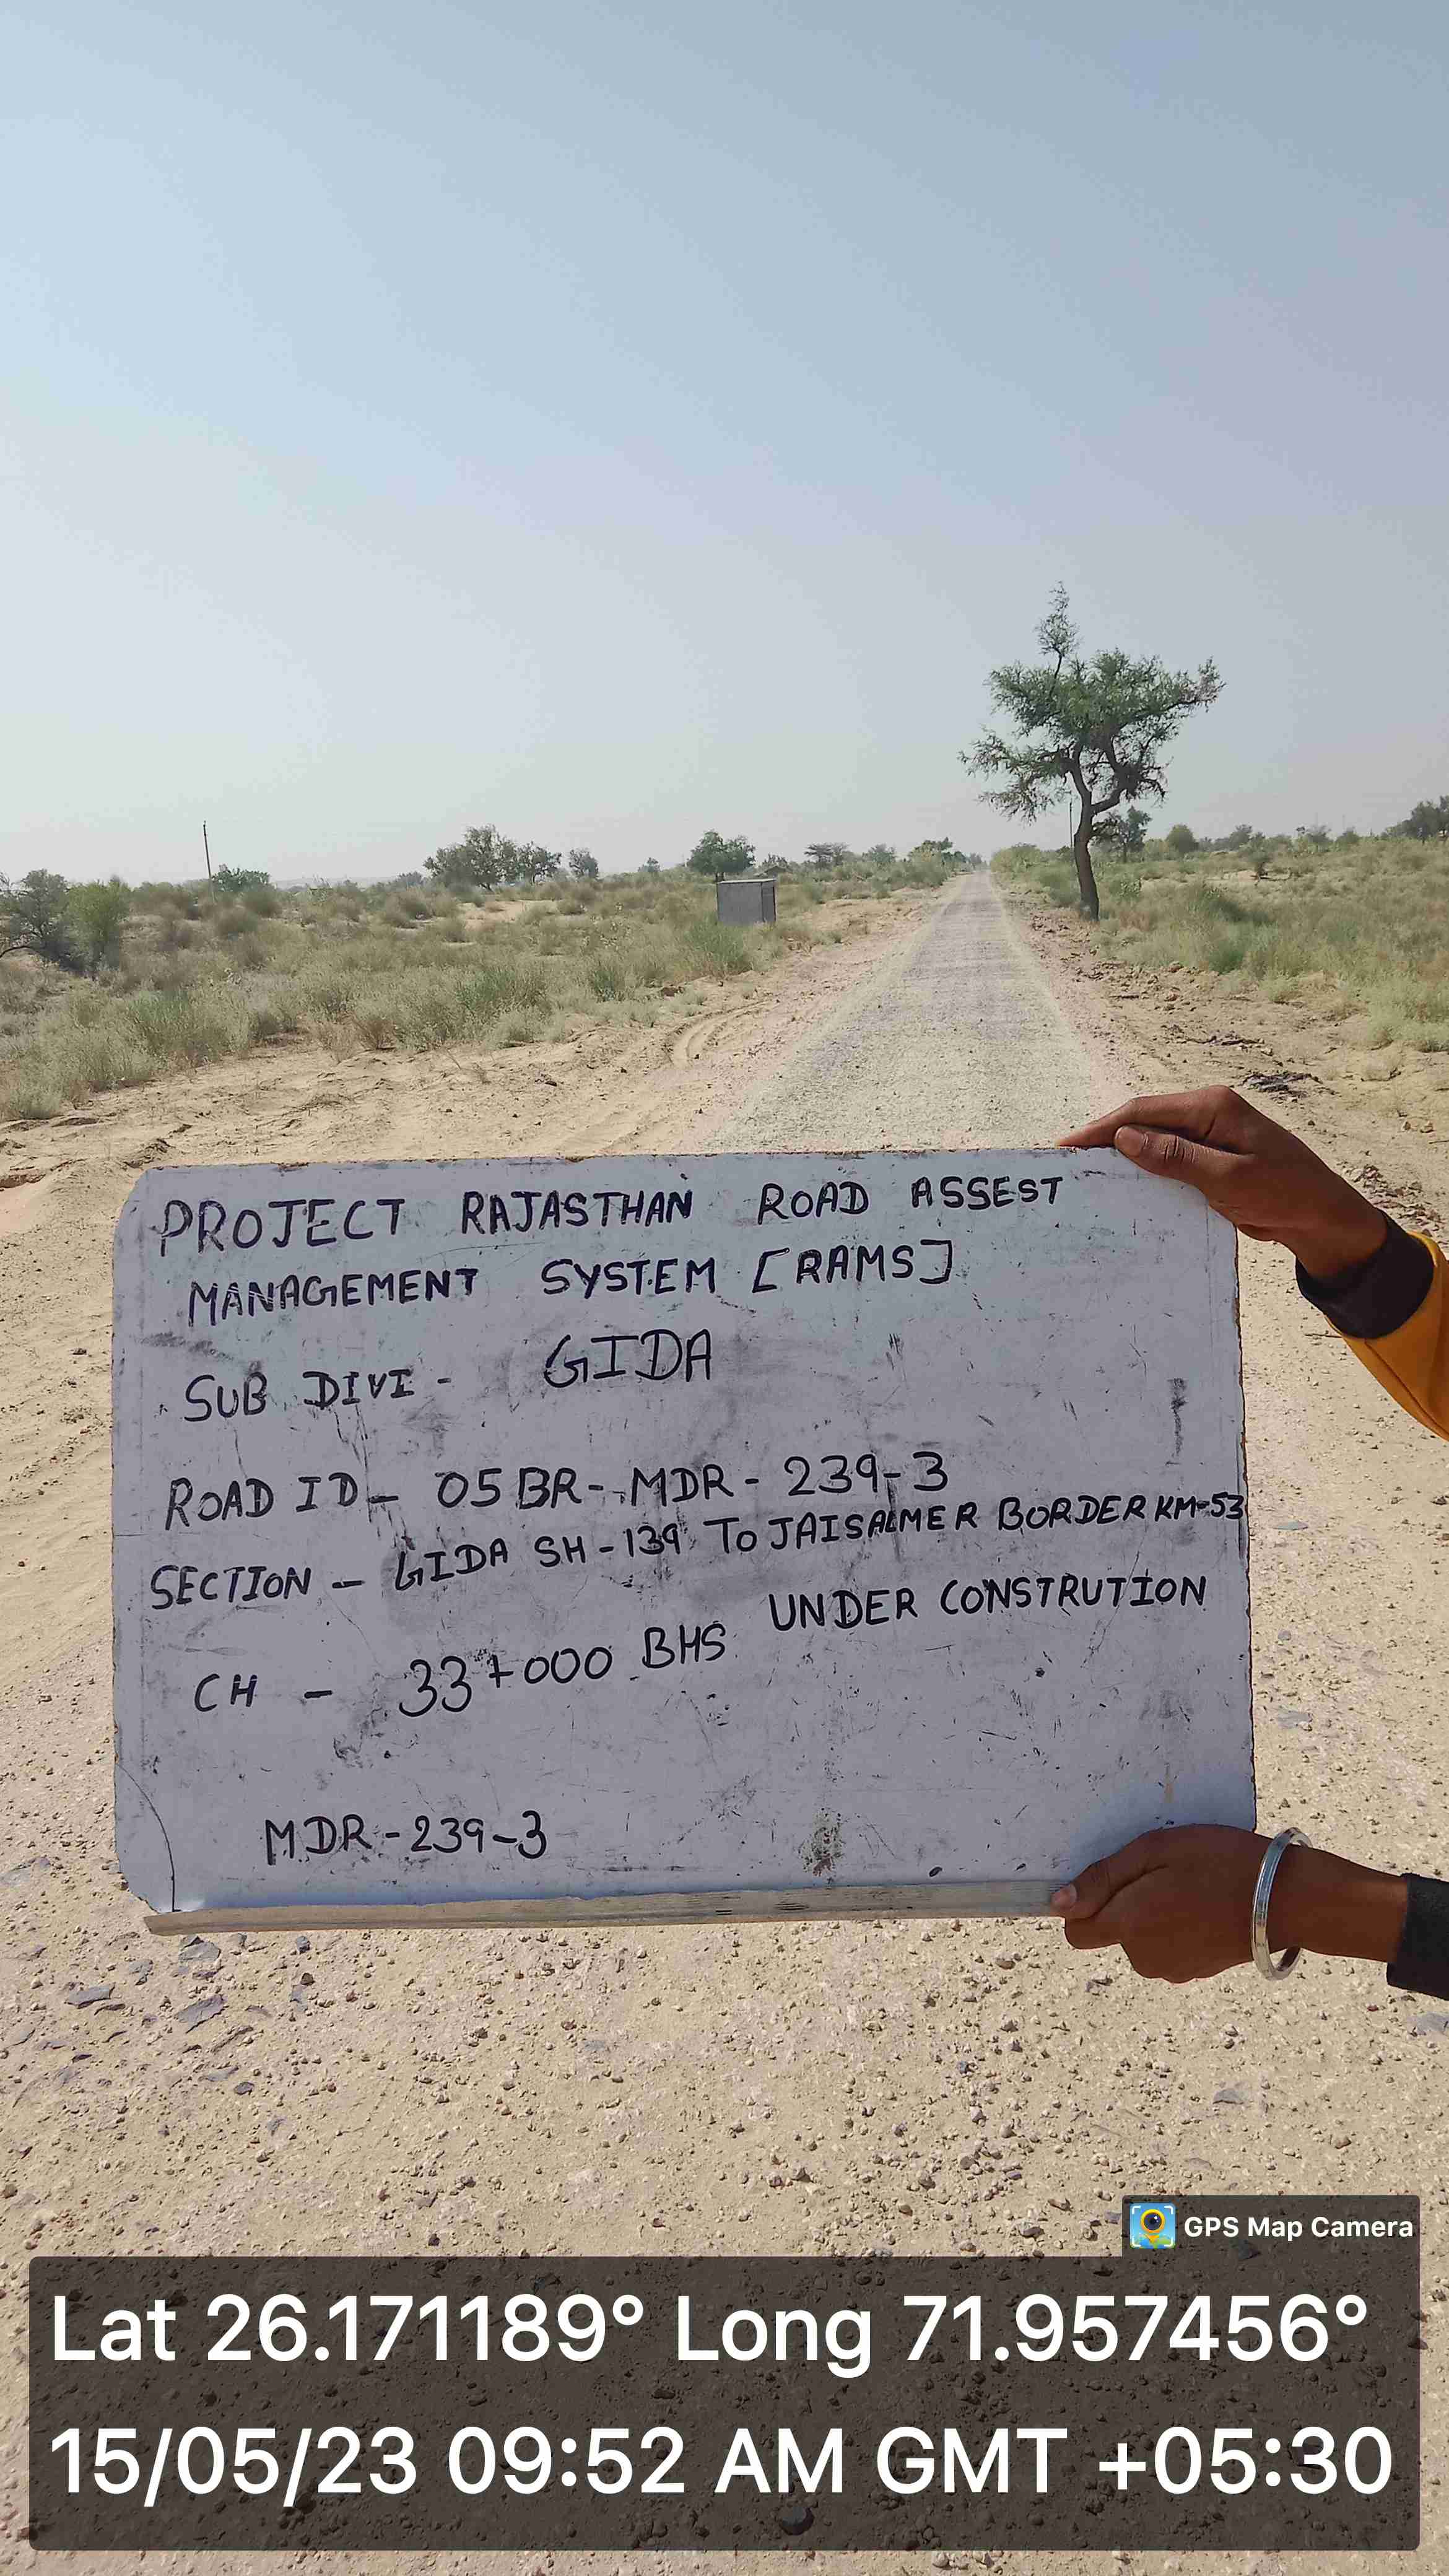 PROJECT RAJASTHAN ROAD ASSEST
MANAGEMENT SYSTEM [RAMS]
SUB DIVI - GIDA
ROAD ID - 05BR - MDR - 239-3
SECTION - GIDA SH-139 TO JAISALMER BORDER KM-53
CH - 33+000 BHS UNDER CONSTRUTION
MDR-239-3
GPS Map Camera
Lat 26.171189° Long 71.957456°
15/05/23 09:52 AM GMT +05:30